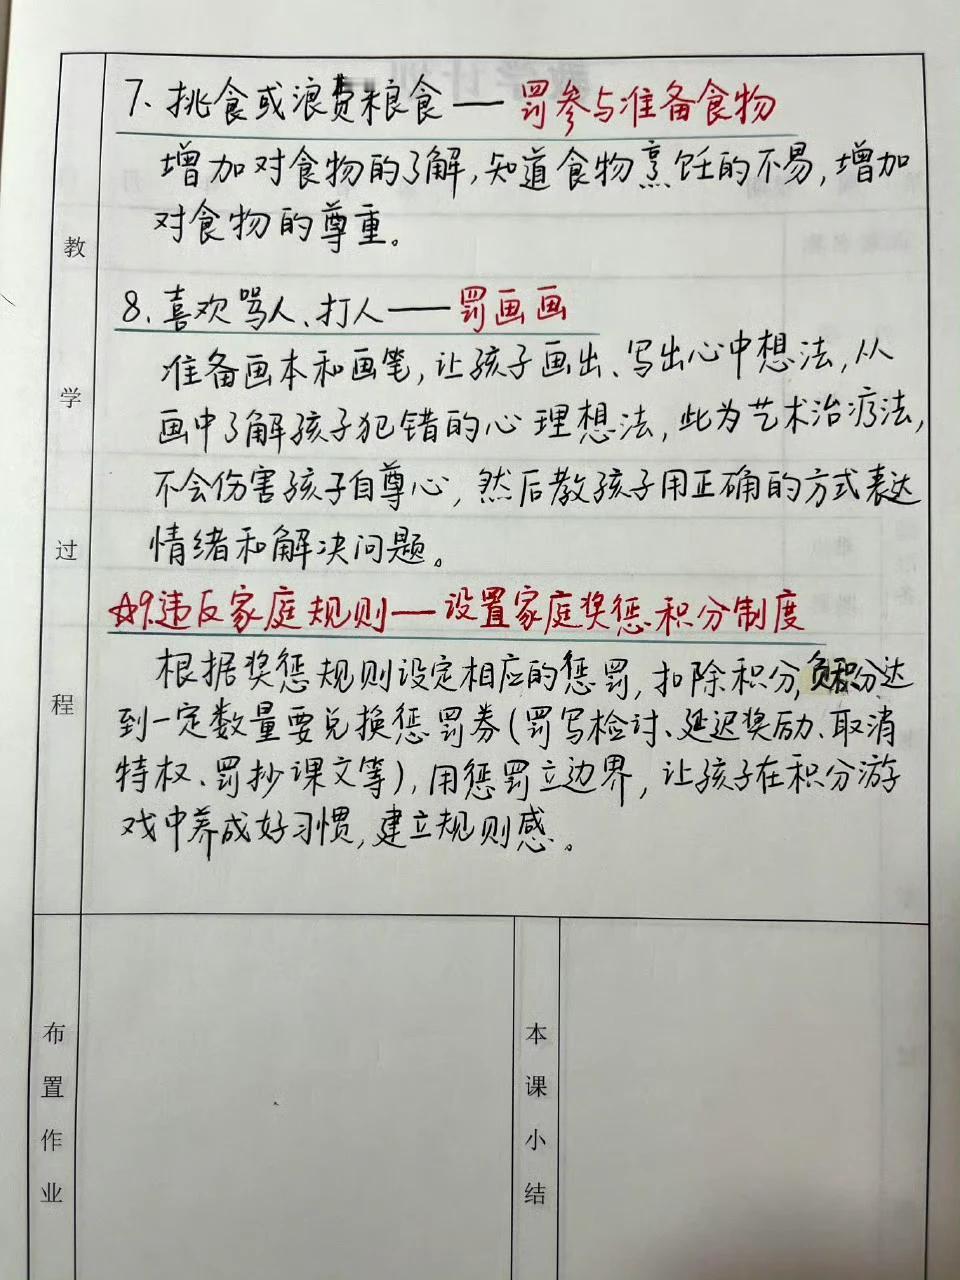 7、挑食或浪费粮食——罚参与准备食物
增加对食物的了解,知道食物烹饪的不易,增加
对食物的尊重。
8、喜欢骂人、打人——罚画画
准备画本和画笔,让孩子画出、写出心中想法,从
画中了解孩子犯错的心理想法,此为艺术治疗法,
不会伤害孩子自尊心,然后教孩子用正确的方式表达
情绪和解决问题。
☆9.违反家庭规则——设置家庭奖惩积分制度
根据奖惩规则设定相应的惩罚,扣除积分,负积分达
到一定数量要兑换惩罚券(罚写检讨、延迟奖励、取消
特权、罚抄课文等),用惩罚立边界,让孩子在积分游
戏中养成好习惯,建立规则感。
教学过程
布置作业
本课小结